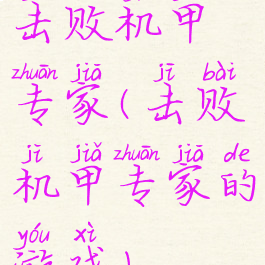 击败机甲
zhuān jiā jī bài
专家(击败
jī jiǎ zhuān jiā de
机甲专家的
yóu xì
游戏)